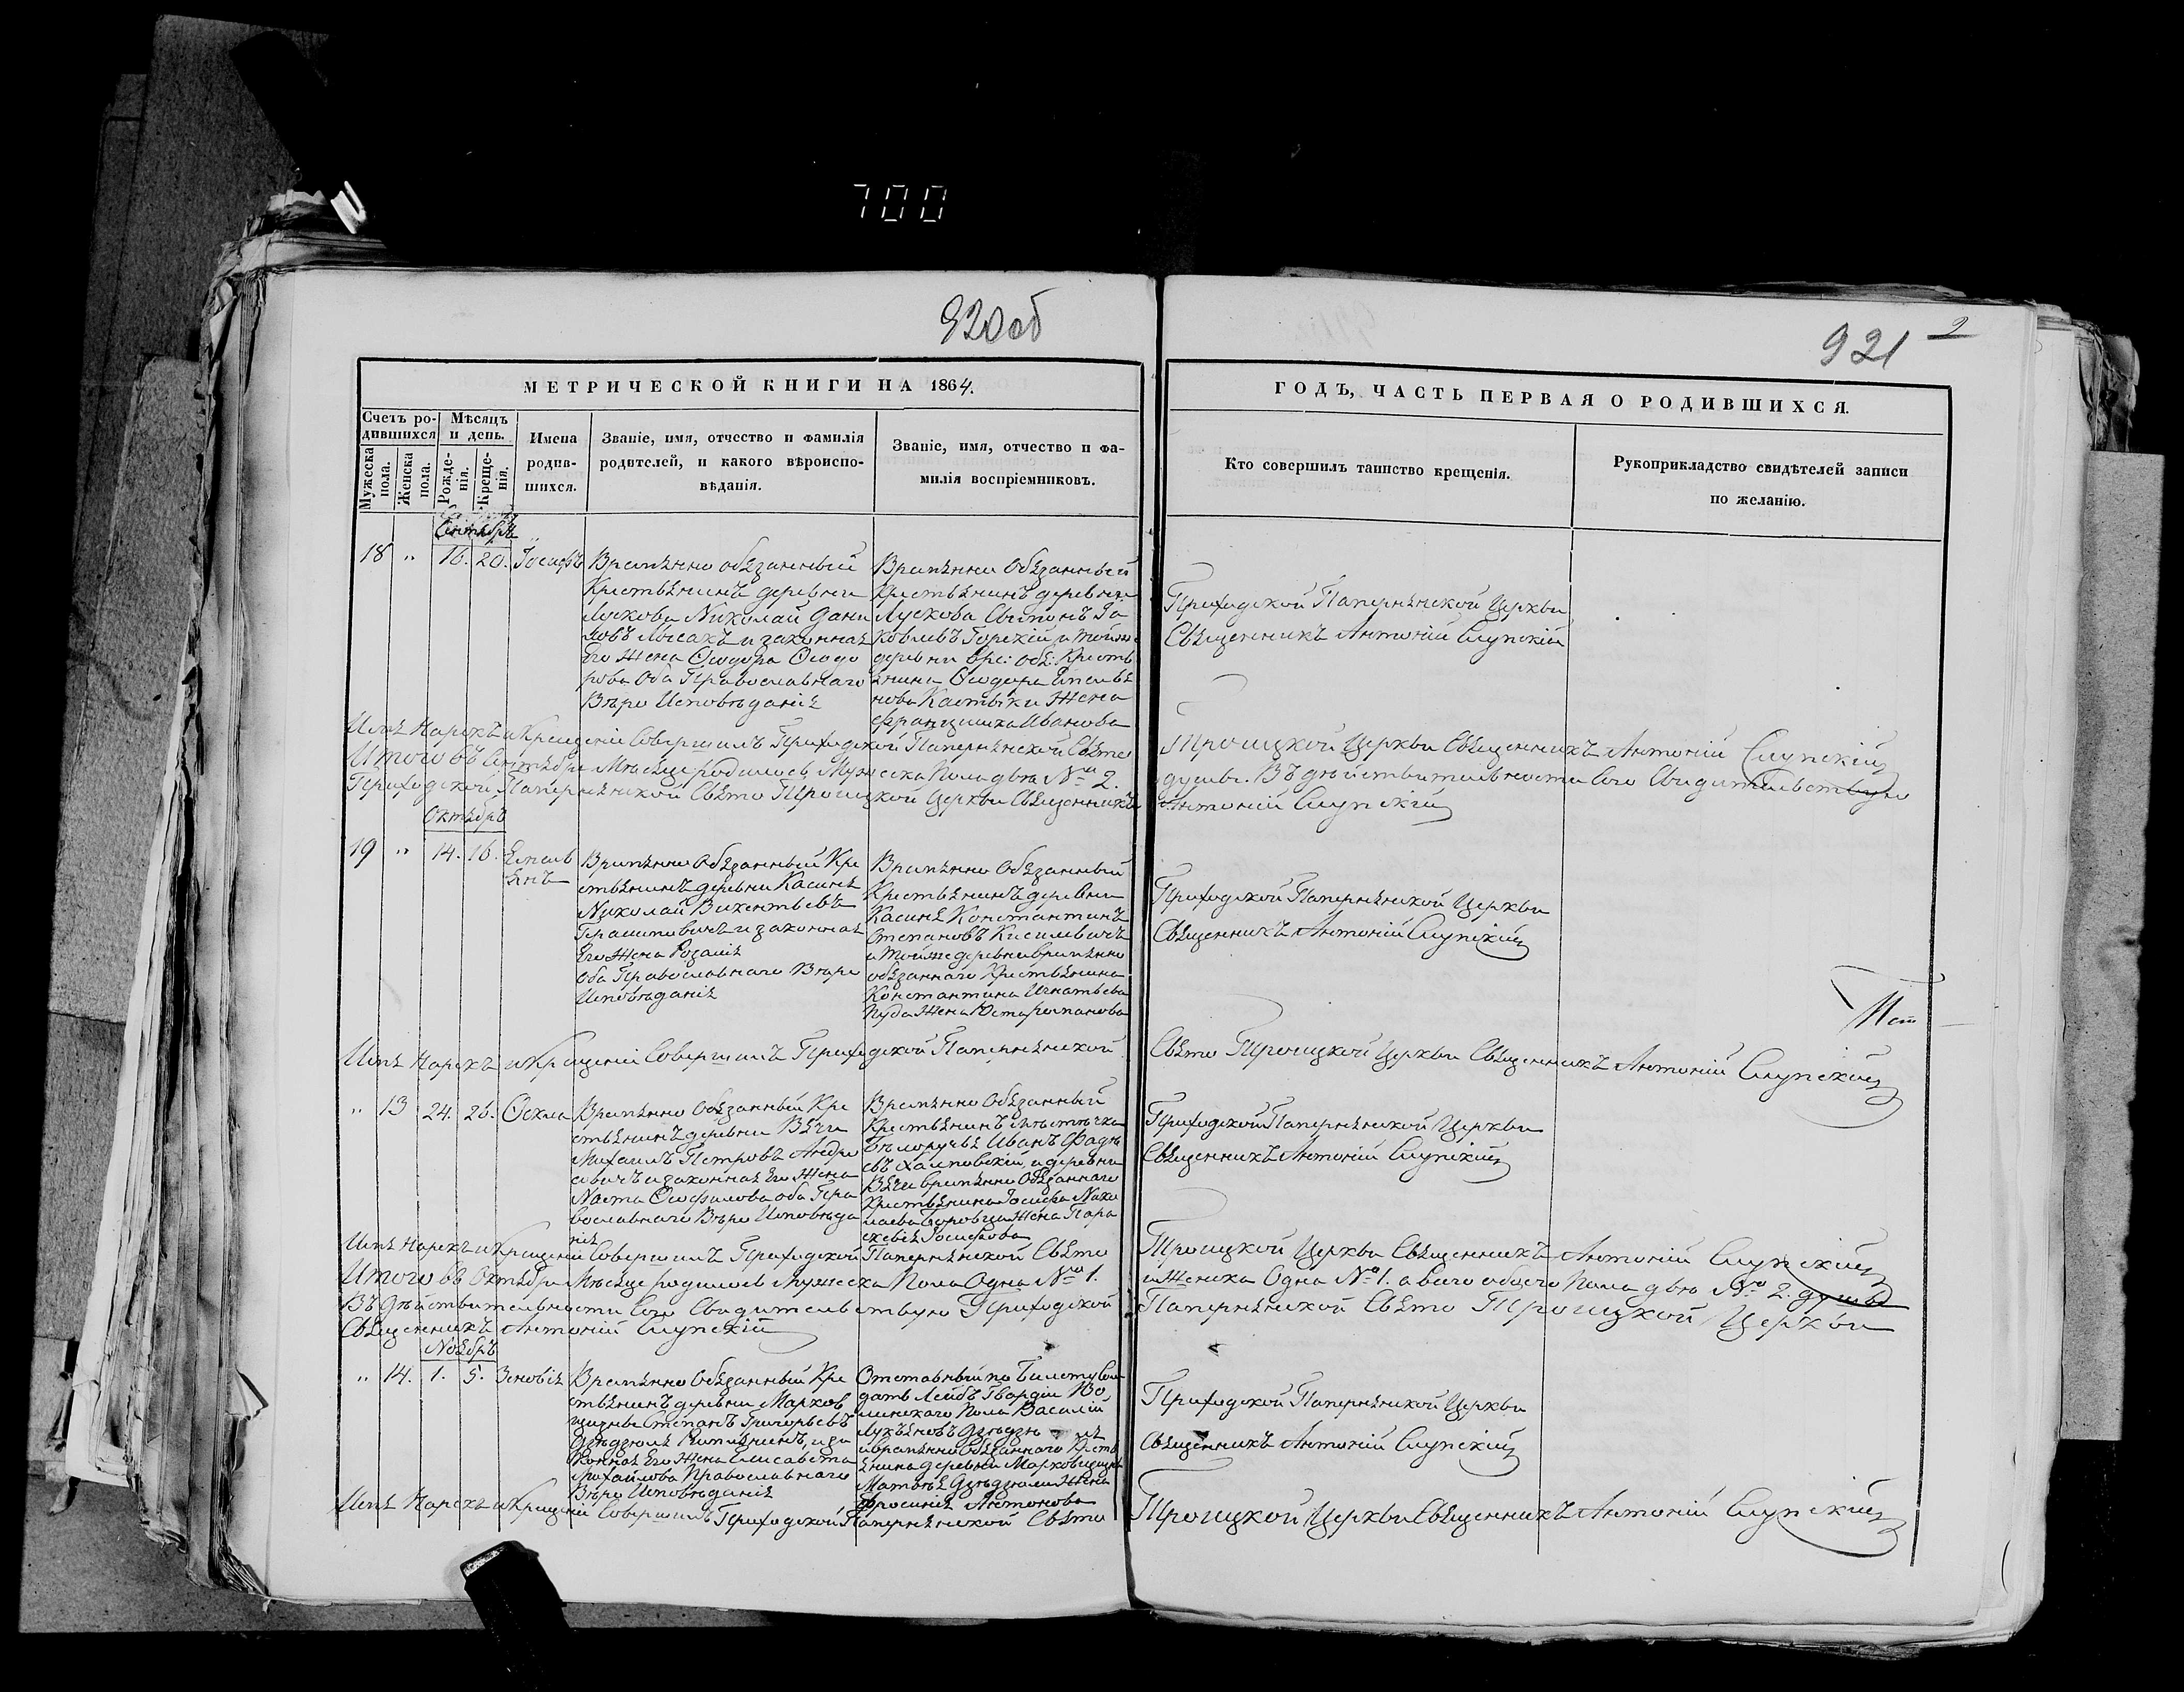 700
920об
921 2
МЕТРИЧЕСКОЙ КНИГИ НА 1864.
ГОДЪ, ЧАСТЬ ПЕРВАЯ О РОДИВШИХСЯ.
Счетъ ро-
дившихся
Мужеска
пола.
Женска
пола.
Мѣсяцъ
и день.
Рожде-
нія.
Креще-
нія.
Имена
родив-
шихся.
Званіе, имя, отчество и фамилія
родителей, и какого вѣроиспо-
вѣданія.
Званіе, имя, отчество и фа-
милія воспріемниковъ.
Кто совершилъ таинство крещенія.
Рукоприкладство свидѣтелей записи
по желанію.
Сентябрь
18 " 16. 20.
Времянно обязанный
Крестьянинъ деревни
Николай Дани
и законная
Его Жена Ѳеодора Ѳеодо
рова Оба Православнаго
Вѣро Исповѣданія
Времянно Обязанный
Крестьянинъ деревни
Лускова
Ковлевъ Горскій и тойже
деревни вре: обя: Кресть
янина Ѳеодора
Жена
Францишка Иванова
Приходской Папернянской Церкви
Священникъ Антоній Слупскій
Имя Нарекъ и Крещеніе Совершилъ Приходской Папернянской Свято
Троицкой Церкви Священникъ Антоній Слупскій
Итого въ Сентябре Мѣсяце родилось Мужеска Пола двѣ № 2.
душы. Въ дѣйствительности Сего Свидительствую
Приходской Папернянской Свято Троицкой Церкви Священникъ
Антоній Слупскій
Октябрь
19 " 14. 16. Емель
янъ
Времянно Обязанный Кре
стьянинъ деревни Касиня
Николай Викентьевъ
и законная
Его Жена Розалія
Оба Православнаго Вѣро
Исповѣданія
Времянно Обязанный
Крестьянинъ деревни
Касиня Константинъ
Степановъ Кисилевичъ
и Тойже деревни времянно
обязаннаго Крестьянина
Константина Игнатьева
Жена
Приходской Папернянской Церкви
Священникъ Антоній Слупскій
Имя Нарекъ и Крещеніе Совершилъ Приходской Папернянской
Свято Троицкой Церкви Священникъ Антоній Слупскій
" 13 24. 26. Ѳекла
Времянно Обязанный Кре
стьянинъ деревни Вячи
Михаилъ Петровъ Андре
евичъ и законная Его Жена
Наста Ѳеофилова оба Пра
вославнаго Вѣро Исповѣда
нія
Времянно Обязанный
Крестьянинъ Мѣстечка
Бѣлоручья Иванъ Фадѣ
евъ и деревни
Вячи времянно Обязаннаго
Крестьянина Іосифа Нико
лаева Боровца Жена Пара
скевія Іосифова
Приходской Папернянской Церкви
Священникъ Антоній Слупскій
Имя Нарекъ и Крещеніе Совершилъ Приходской Папернянской Свято
Троицкой Церкви Священникъ Антоній Слупскій
Итого въ Октябре Мѣсяце родилось Мужеска Пола Одна № 1.
и Женска Одна № 1. а всего обоего Пола двѣ № 2. душы
Въ Дѣйствительности Сего Свидительствую Приходской
Папернянской Свято Троицкой Церкви
Священникъ Антоній Слупскій
Ноябрь
" 14. 1. 5. Зиновія
Времянно Обязанный Кре
стьянинъ деревни Марков
щизны Степанъ Григорьевъ
и за
конная Его Жена Елисавета
Михайлова Православнаго
Вѣро Исповѣданія
Отставный по Билету Сол
датъ Лейбъ Гвардіи Во
линскаго Полка Василій
Лукьяновъ
и времянно Обязаннаго Кресть
янина деревни Марковщизны
Матвѣя Жена
Фросинія Антонова
Приходской Папернянской Церкви
Священникъ Антоній Слупскій
Имя Нарекъ и Крещеніе Совершилъ Приходской Папернянской Свято
Троицкой Церкви Священникъ Антоній Слупскій